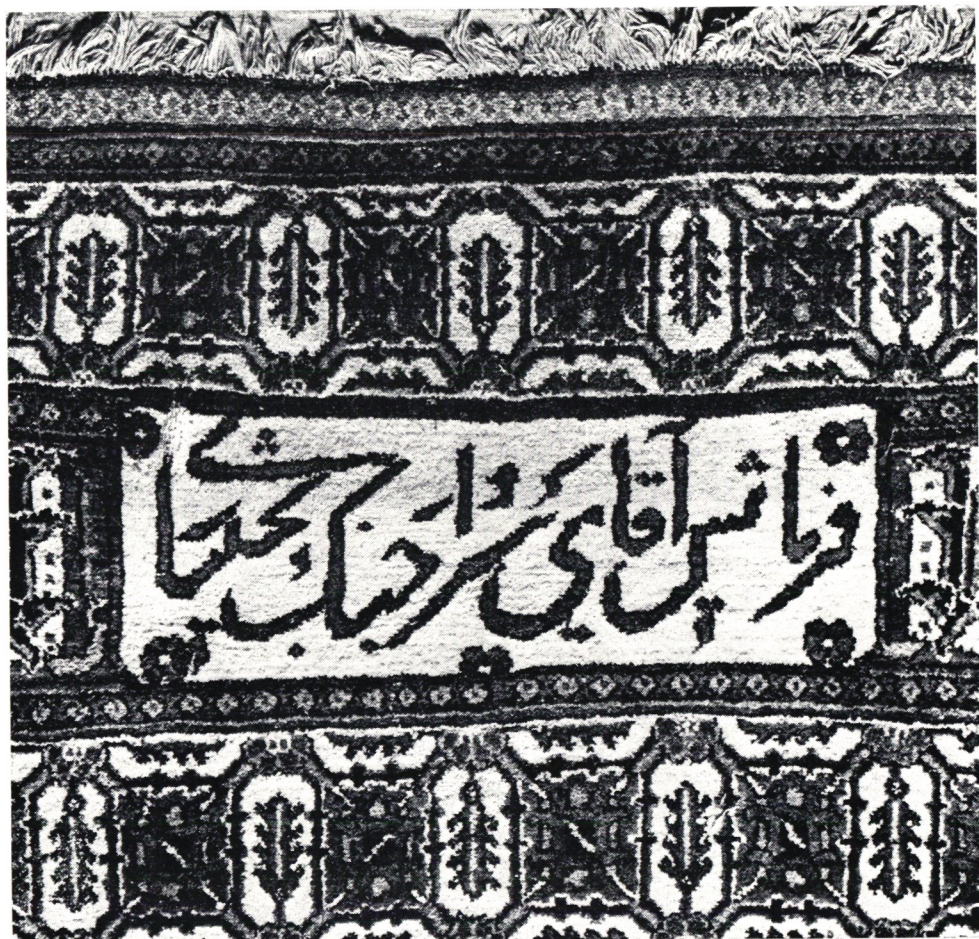 فرمایش آقای سردار جنگ بختیاری